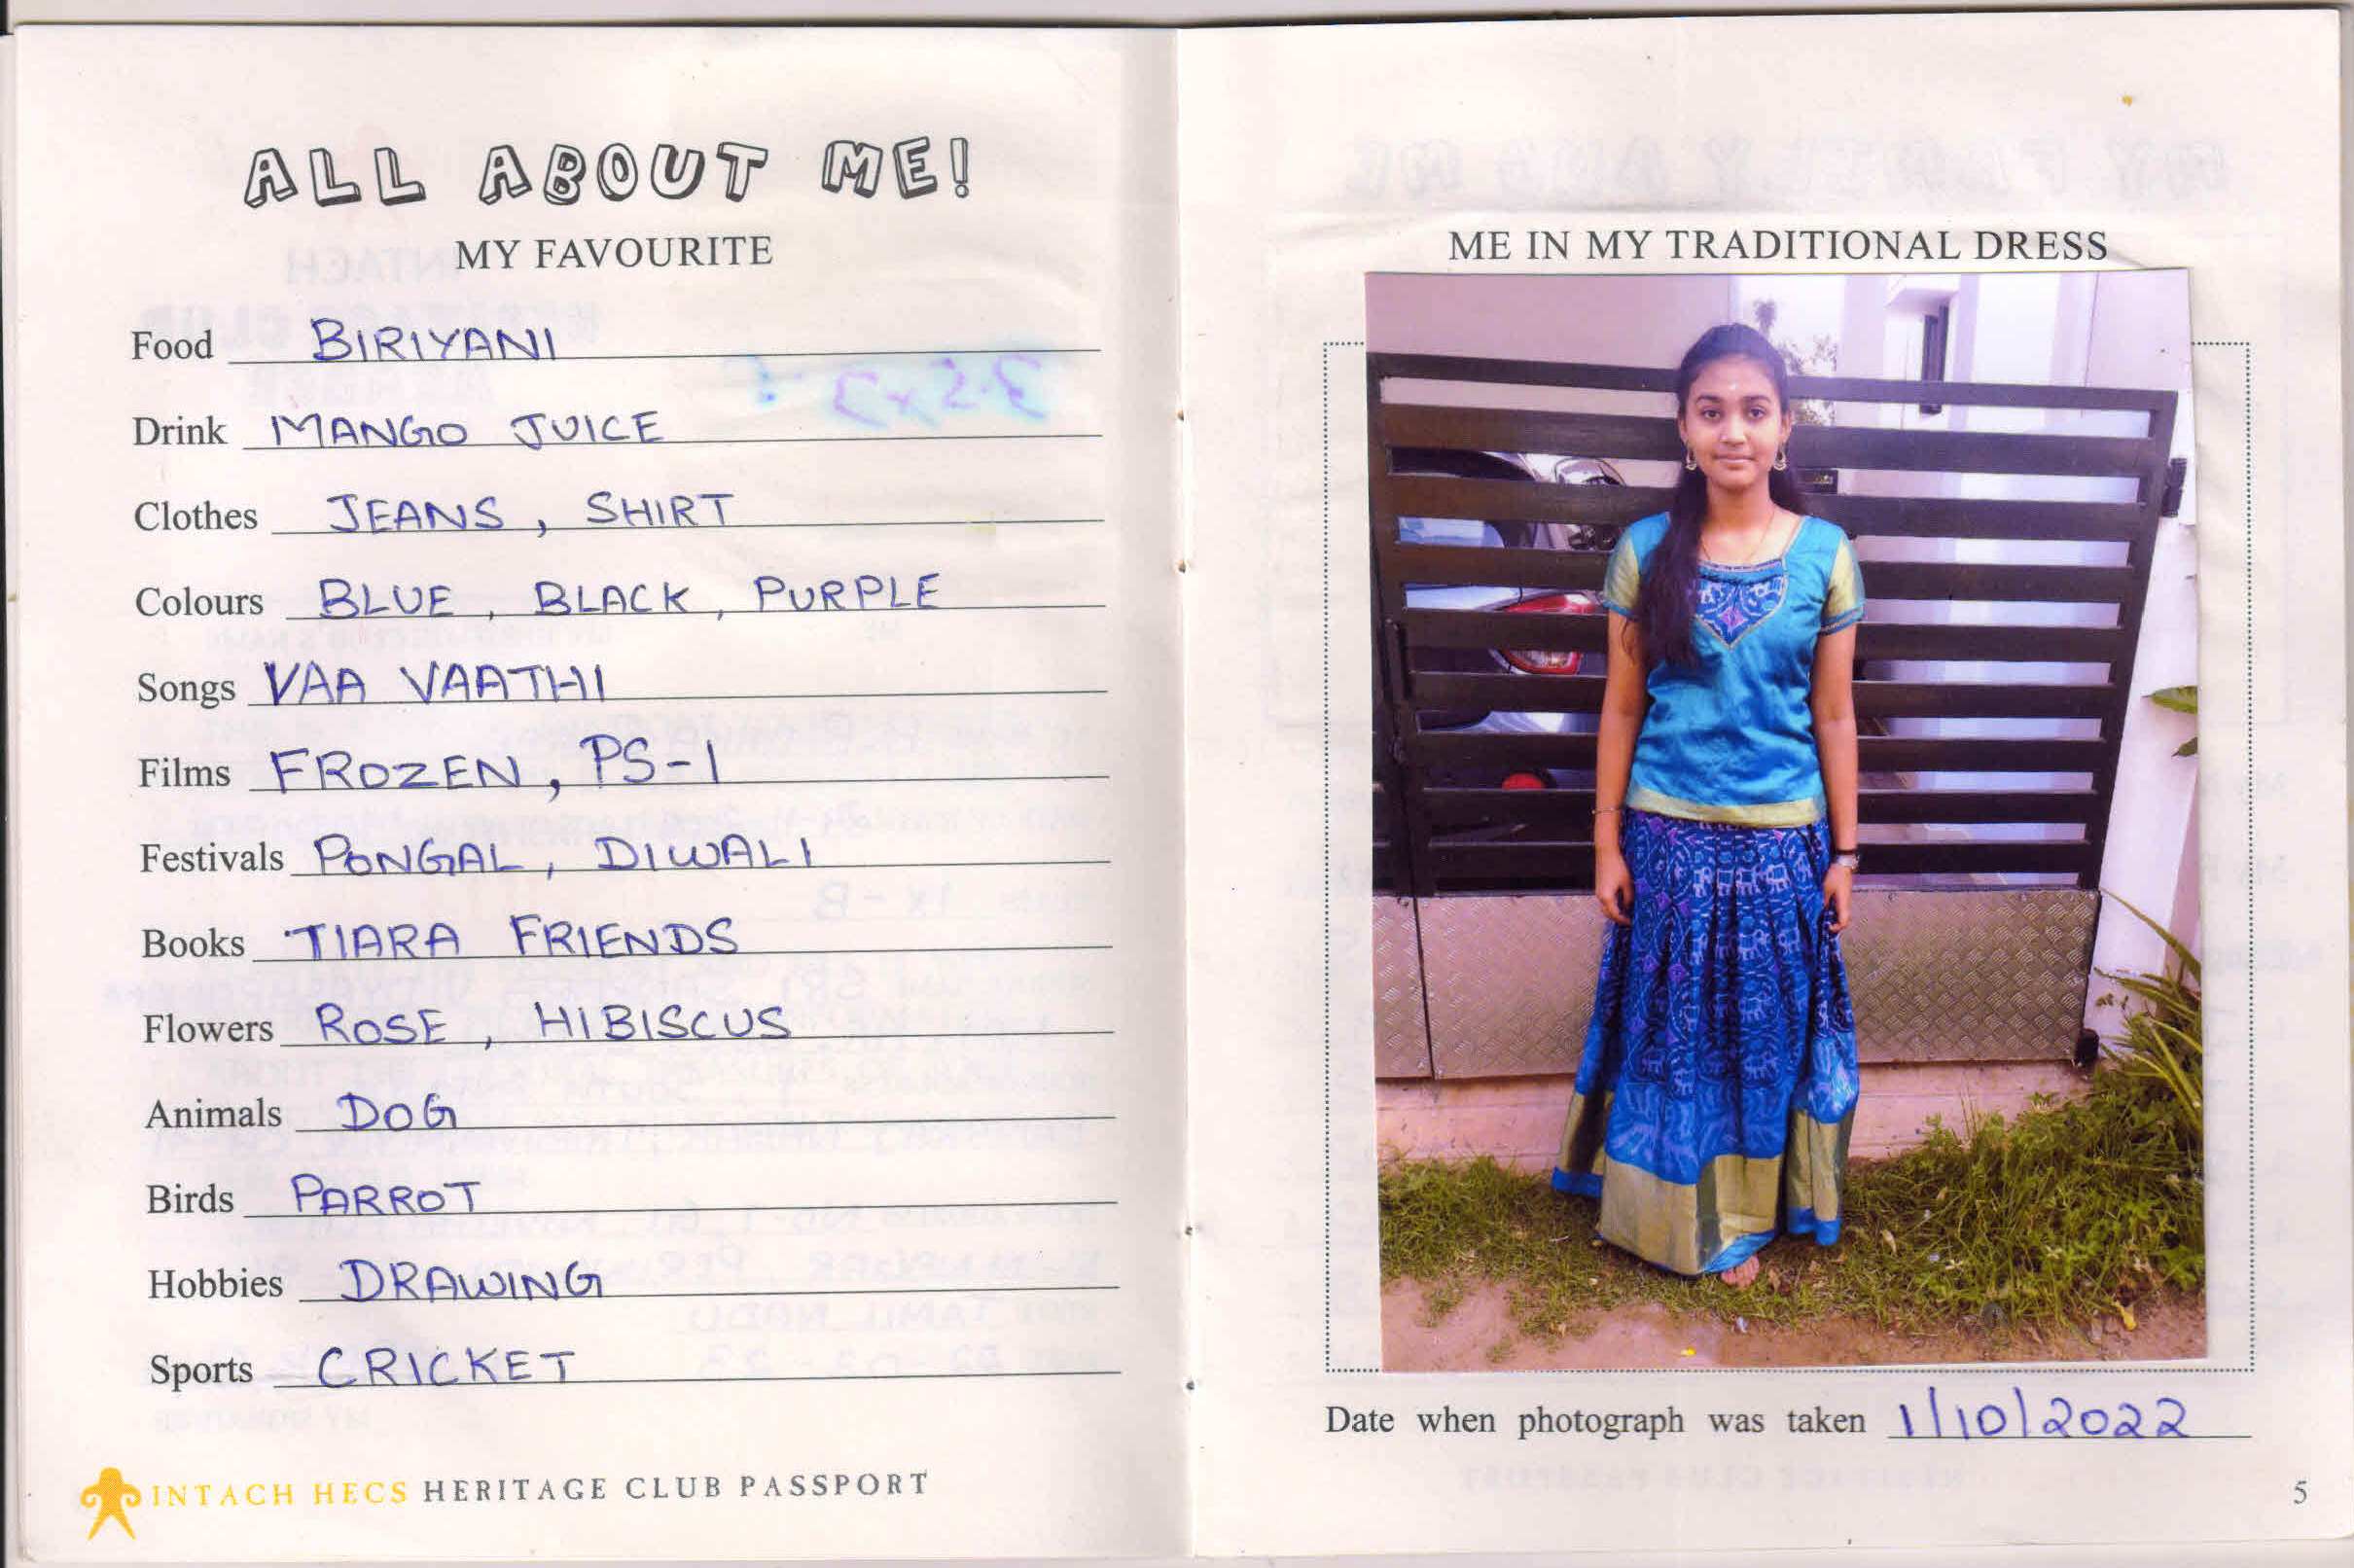 ALL ABOUT ME!
MY FAVOURITE
Food BIRIYANI
Drink MANGO JUICE
Clothes JEANS, SHIRT
Colours BLUE, BLACK, PURPLE
Songs VAA VAATHI
Films FROZEN, PS-1
Festivals PONGAL, DIWALI
Books TIARA FRIENDS
Flowers ROSE, HIBISCUS
Animals DOG
Birds PARROT
Hobbies DRAWING
Sports CRICKET
INTACH HECS HERITAGE CLUB PASSPORT
ME IN MY TRADITIONAL DRESS
Date when photograph was taken 1/10/2022
5